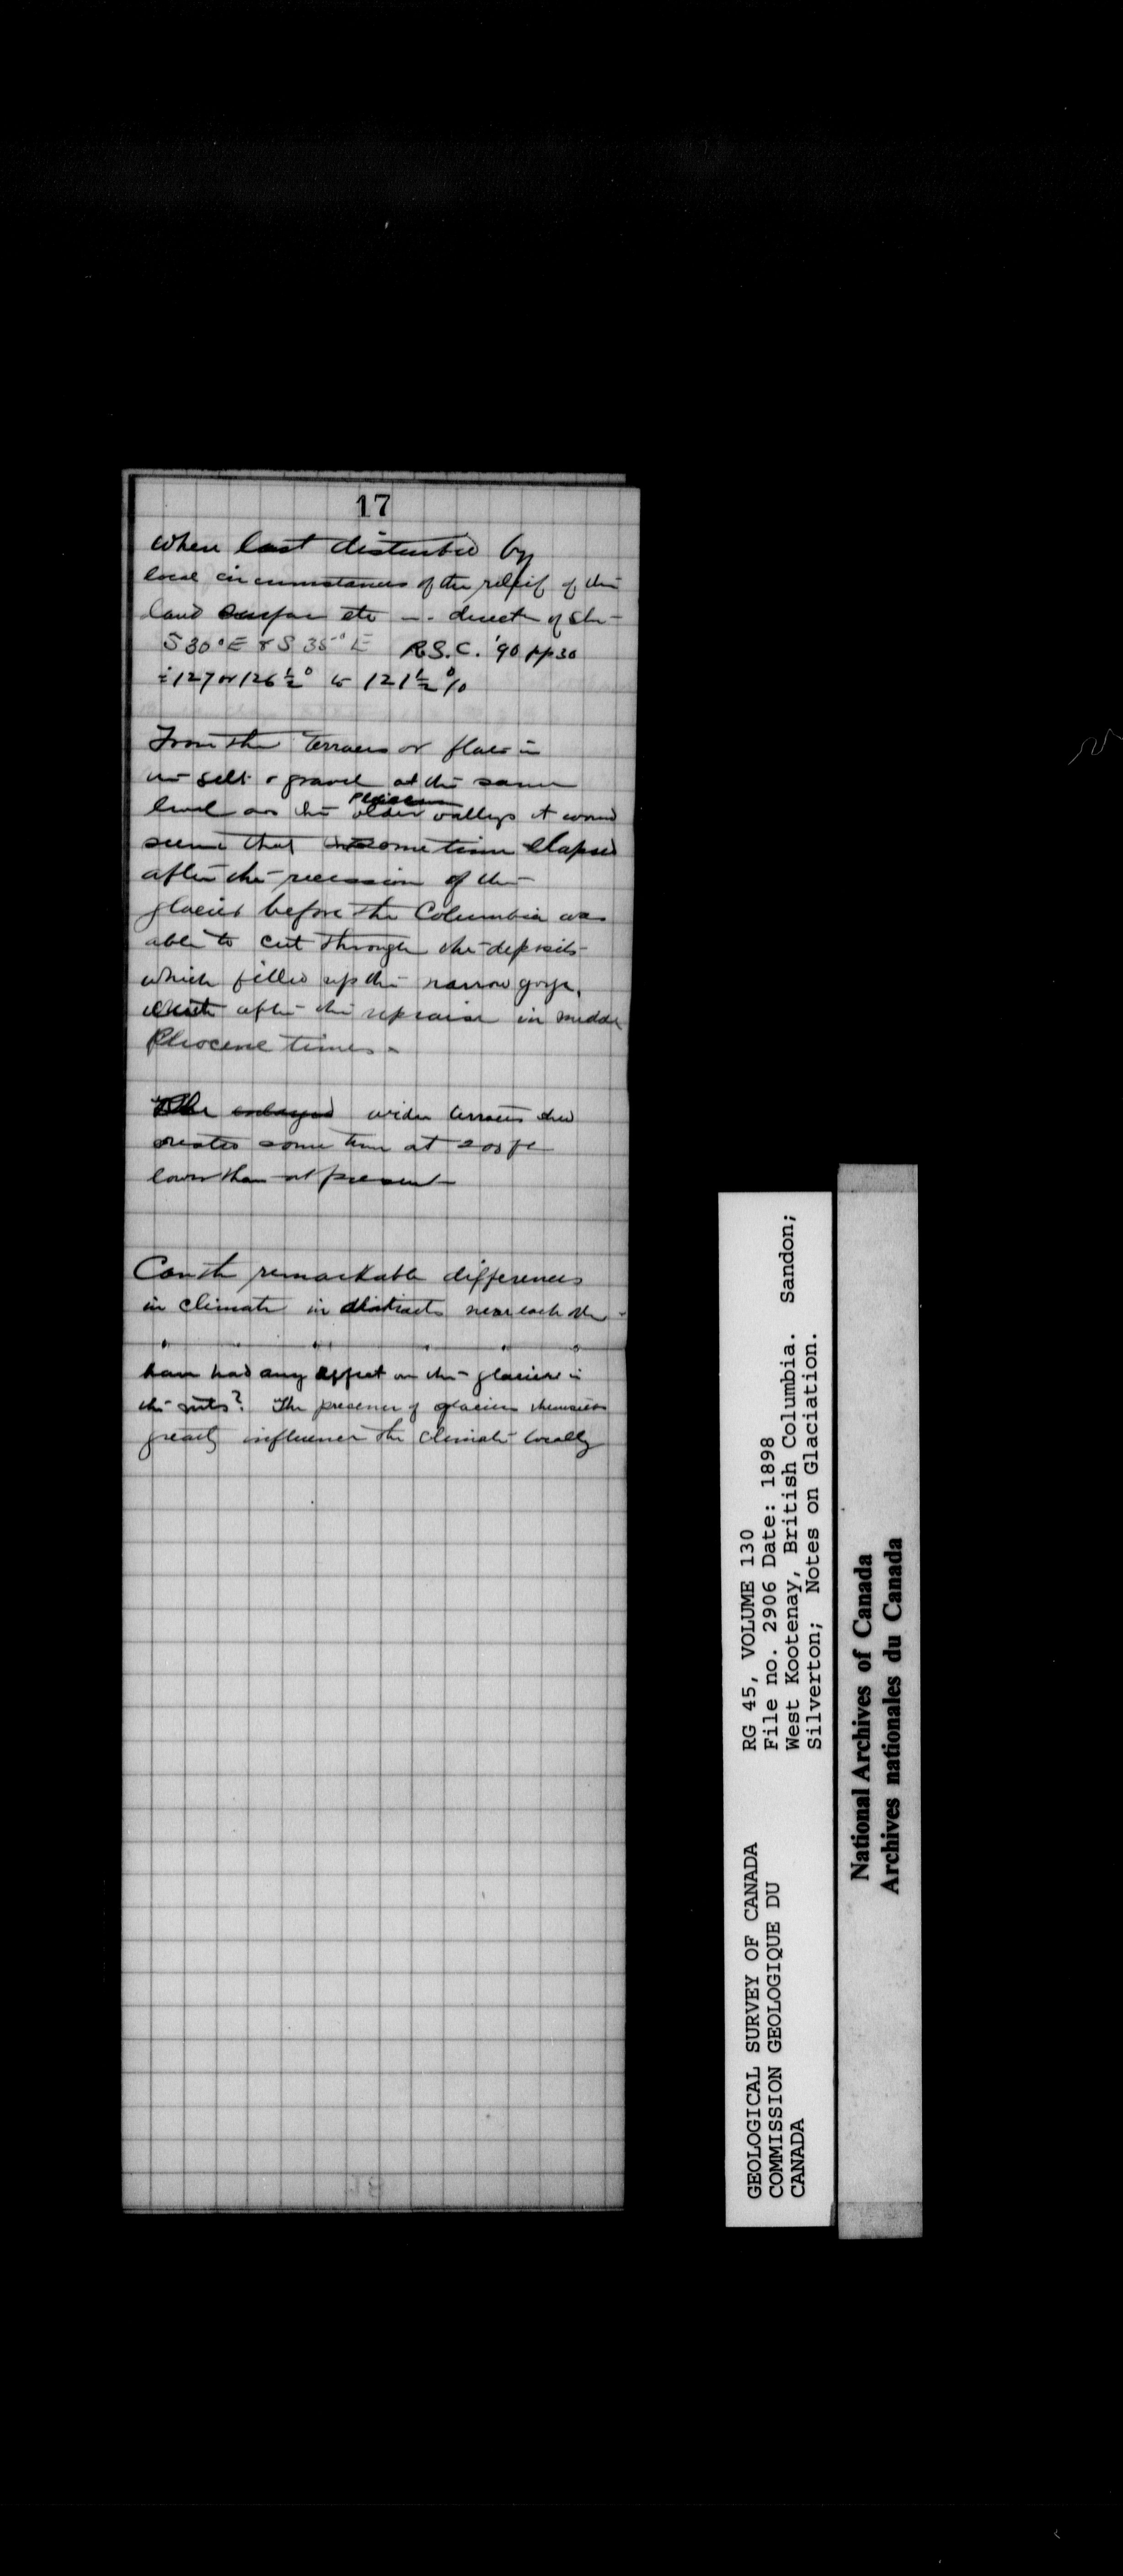 17
When last disturbed by
local circumstances of the relief of the
land surface etc --- direct of
S 30° E & S 35° E R.S.C. '90 pp 30
127 or 126 ½° to 121 ½ %
From the terraces or flats in
silt & gravel at the same
level as the older valleys it would
seem that some time elapsed
after the recession of the
glacier before the Columbia was
able to cut through the deposits
which filled up the narrow gorge,
after the in middle
Pliocene times.
The enlarged wider terraces
some time at 200 ft
lower than at present
Can the remarkable differences
in climate in districts near each other
have had any effect on the glaciers in
the mts? The presence of glaciers themselves
greatly influences the climate locally
GEOLOGICAL SURVEY OF CANADA
COMMISSION GEOLOGIQUE DU
CANADA
RG 45, VOLUME 130
File no. 2906 Date: 1898
West Kootenay, British Columbia. Sandon;
Silverton; Notes on Glaciation.
National Archives of Canada
Archives nationales du Canada